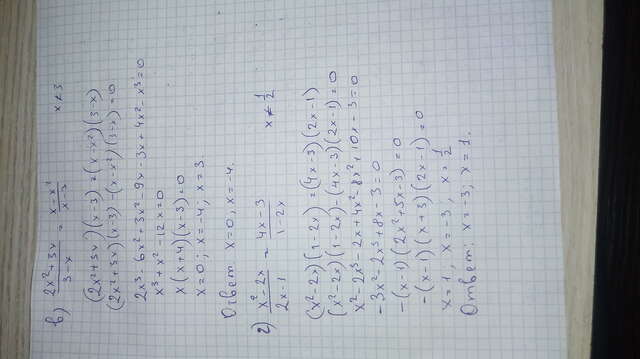 в) (2x²+3x)/(3-x) = (x-x²)/(x-3) x≠3
(2x²+3x)(x-3)=(x-x²)(3-x)
(2x²+3x)(x-3)-(x-x²)(3-x)=0
2x³-6x²+3x²-9x-3x+4x²-x³=0
x³+x²-12x=0
x(x+4)(x-3)=0
x=0; x=-4; x=3
Ответ x=0, x=-4.
г) (x²-2x)/(2x-1) = (4x-3)/(1-2x) x≠1/2
(x²-2x)(1-2x)=(4x-3)(2x-1)
(x²-2x)(1-2x)-(4x-3)(2x-1)=0
x²-2x³-2x+4x²-8x²+10x-3=0
-3x²-2x³+8x-3=0
-(x-1)(2x²+5x-3)=0
-(x-1)(x+3)(2x-1)=0
x=1, x=-3, x=1/2
Ответ: x=-3; x=1.